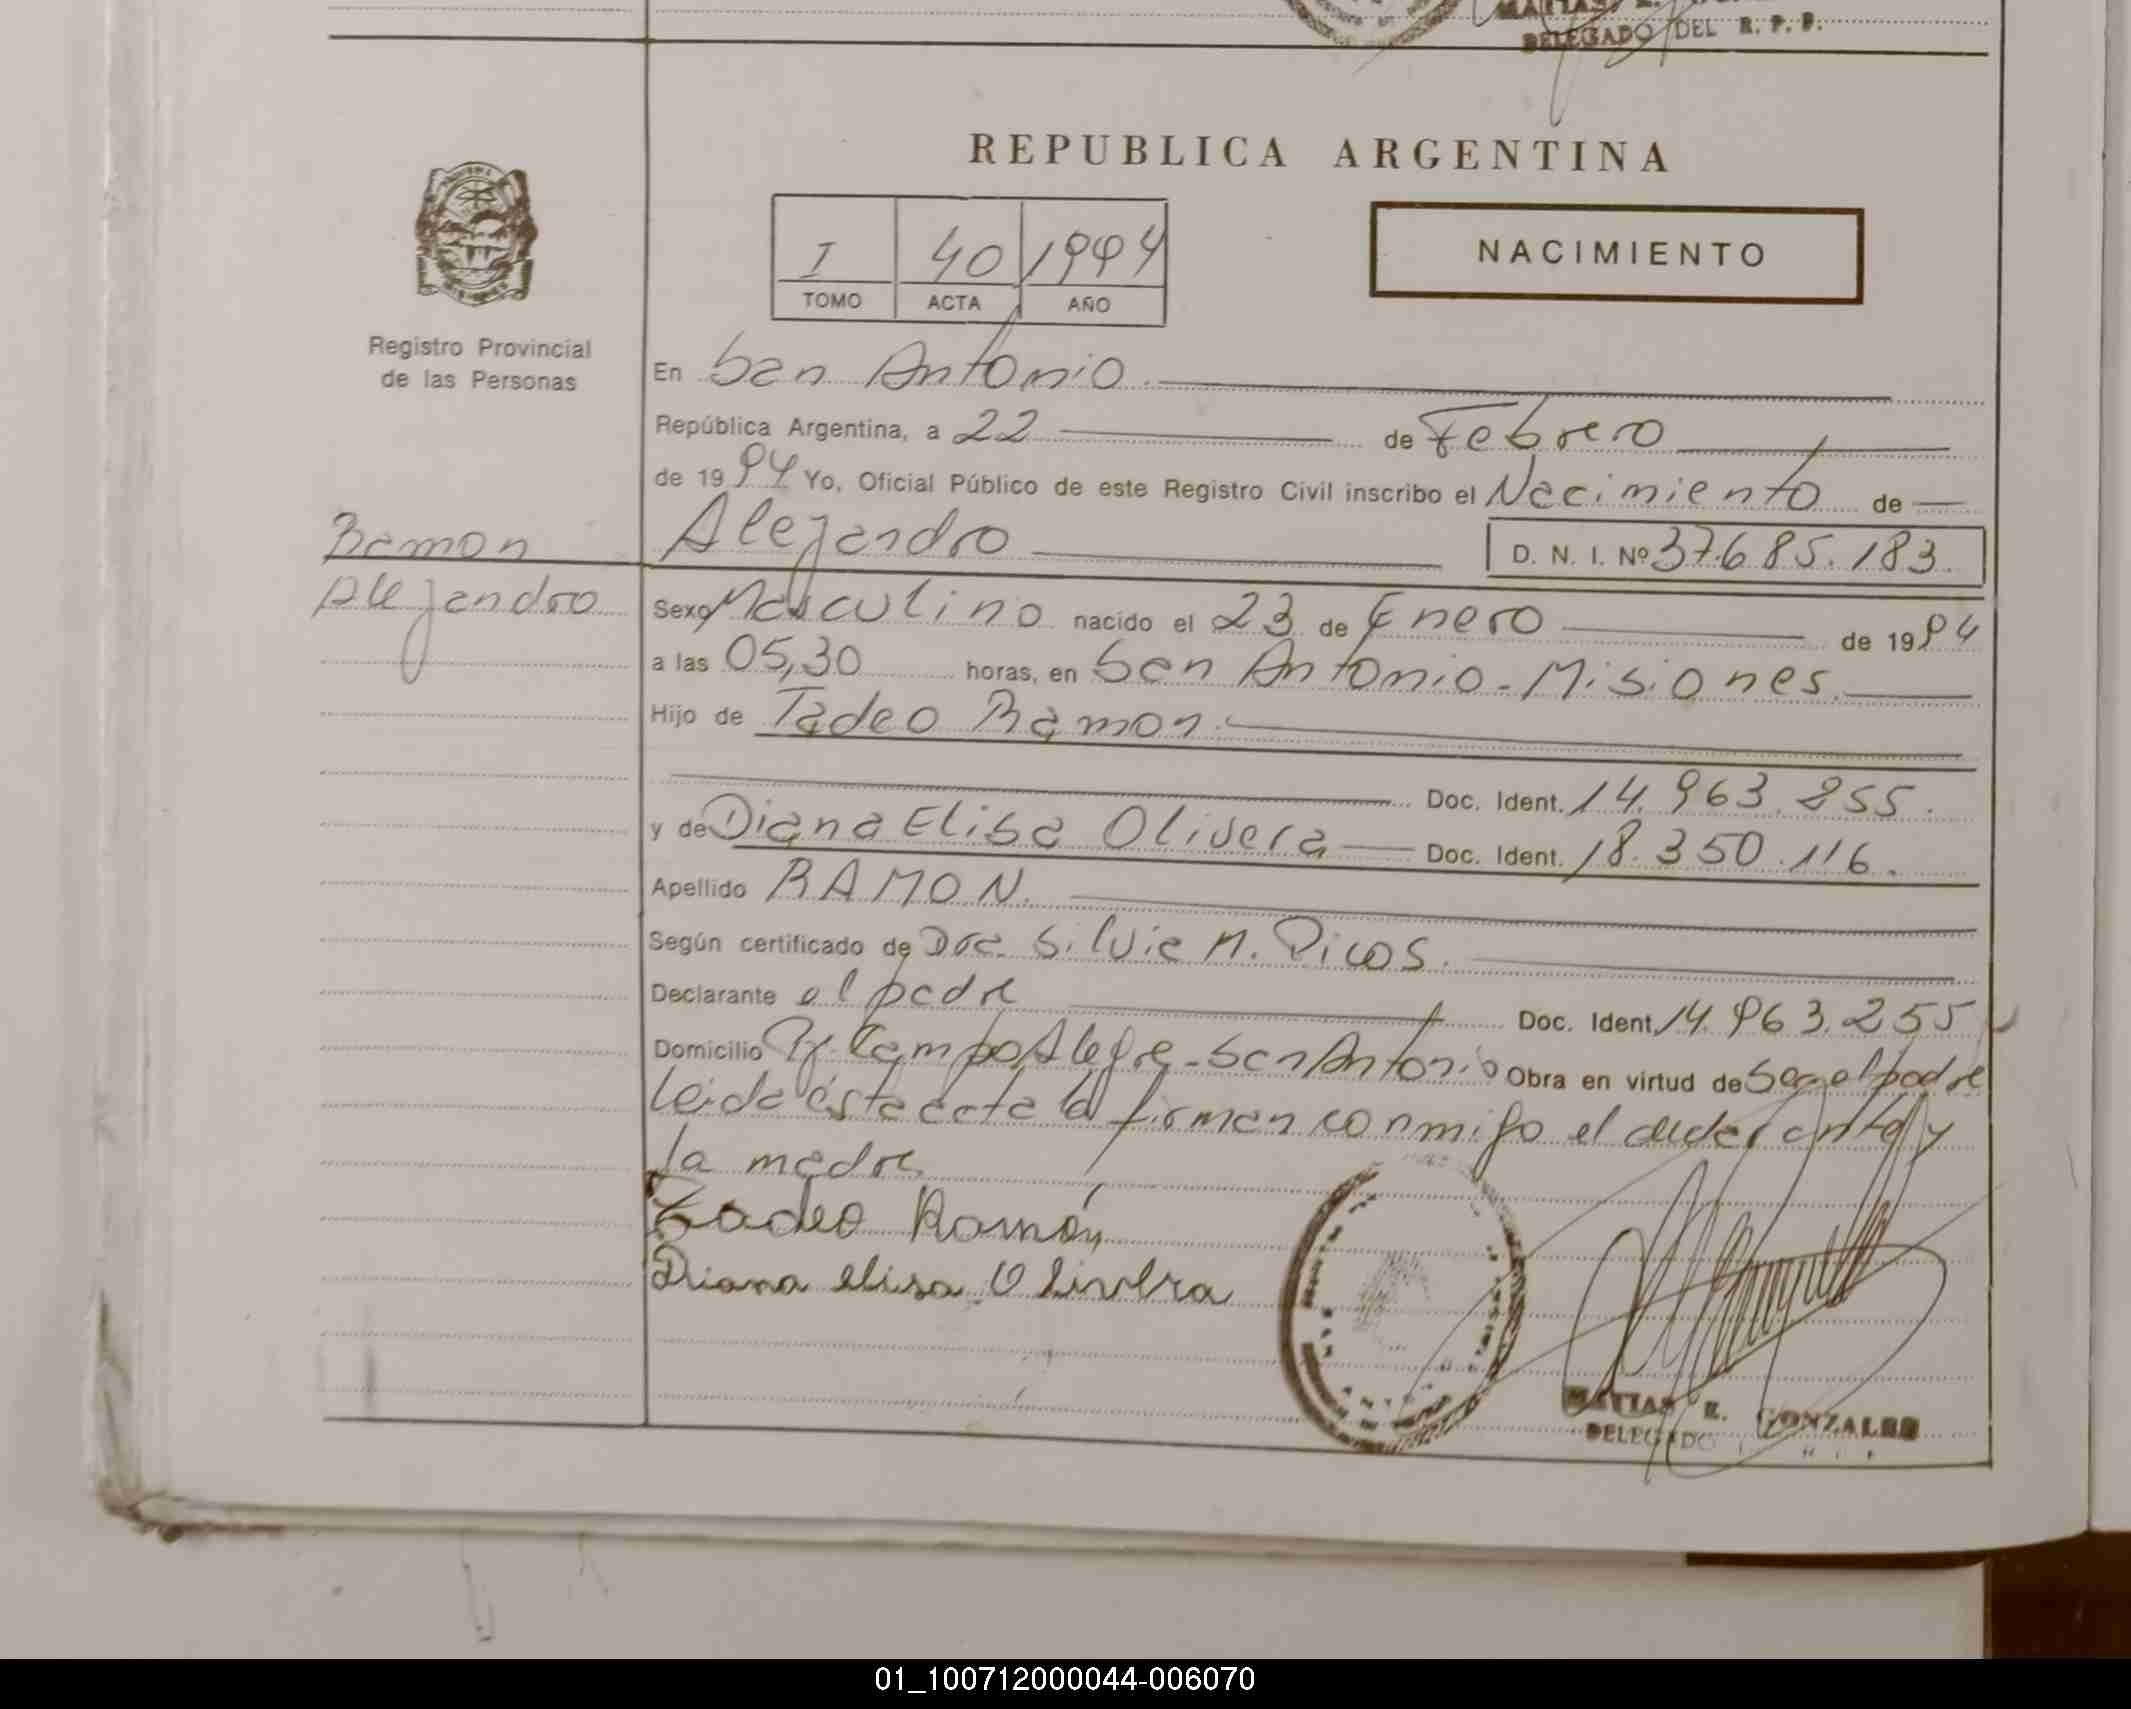 DELEGADO DEL R. P. P.
REPUBLICA ARGENTINA
I 40 1994
TOMO ACTA AÑO
NACIMIENTO
Registro Provincial
de las Personas
En San Antonio
República Argentina, a 22 de Febrero
de 1994 Yo, Oficial Público de este Registro Civil inscribo el Nacimiento de
Ramon
Alejandro
Alejandro D. N. I. Nº 37.685.183.
Sexo Masculino nacido el 23 de Enero de 1994
a las 05,30 horas, en San Antonio - Misiones.
Hijo de Tadeo Ramon.
Doc. Ident. 14.963.255.
y de Diana Elisa Olivera Doc. Ident. 18.350.116.
Apellido RAMON.
Según certificado de Dra. Silvia M.
Declarante el padre Doc. Ident. 14.963.255
Domicilio Campo Alegre - San Antonio Obra en virtud de Ser el padre
Leida ésta acta la firman conmigo el declarante y
la madre
Tadeo Ramón
Diana elisa Olivera
MATIAS E. GONZALEZ
DELEGADO
01_100712000044-006070